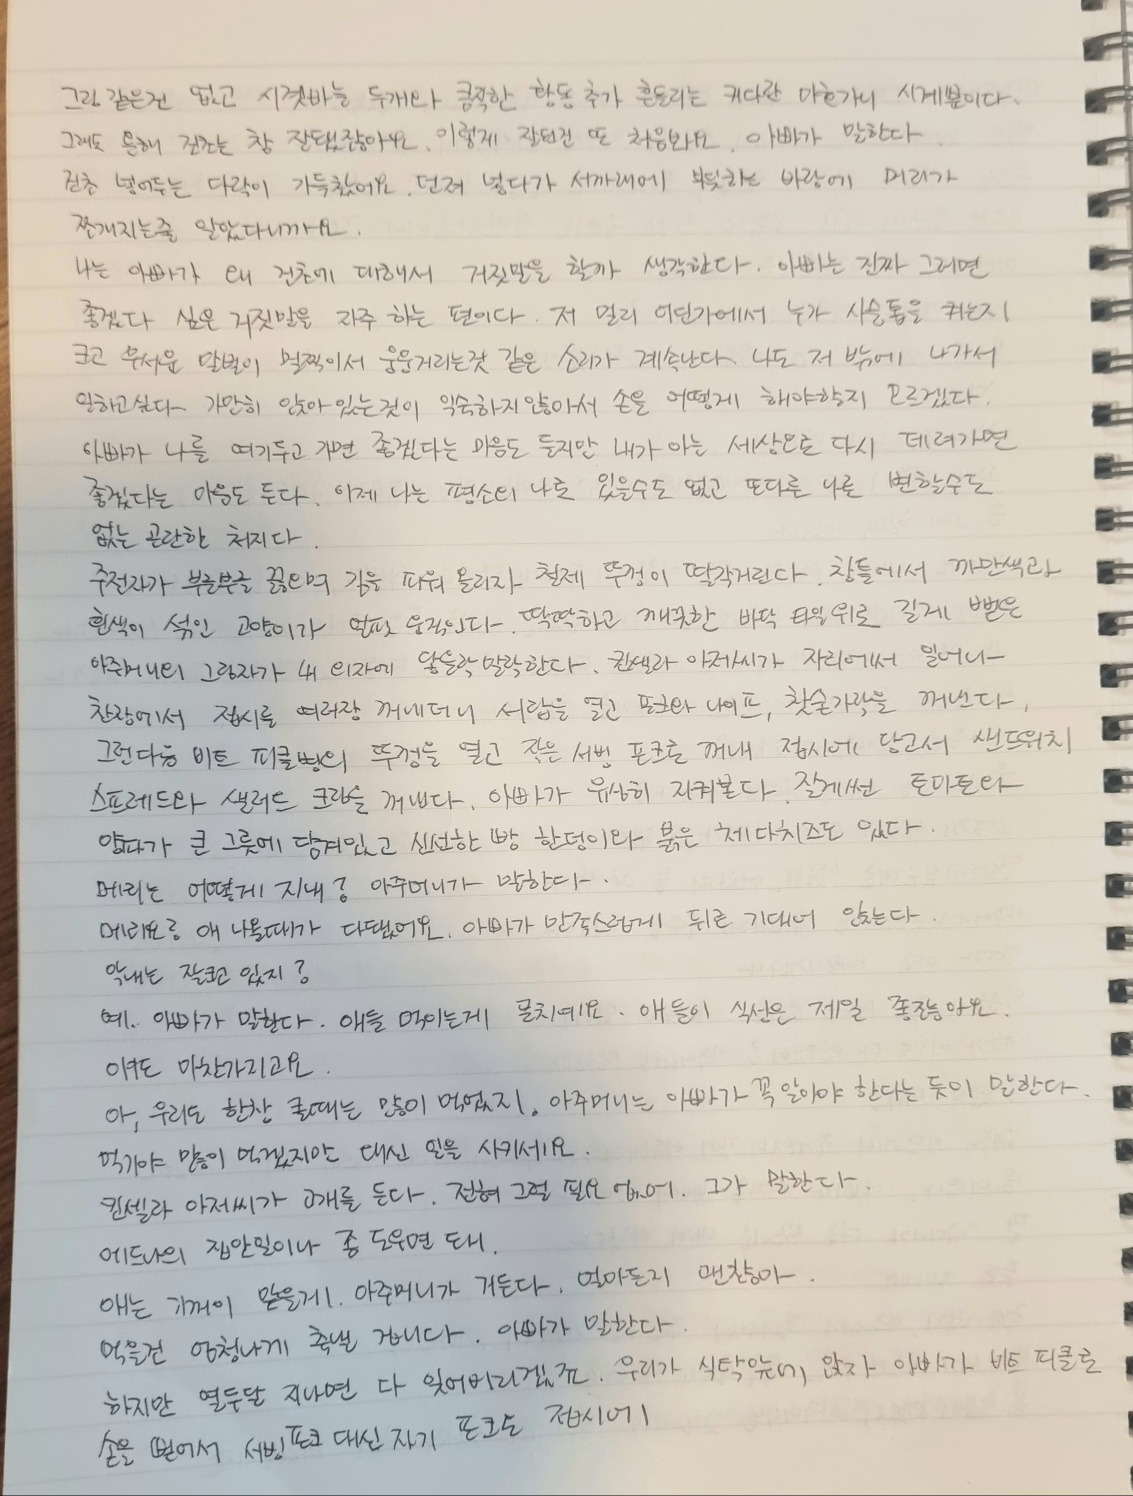 그림 같은건 없고 시곗바늘 두개와 큼직한 황동 추가 흔들리는 커다란 마호가니 시계뿐이다.
그래도 올해 건초는 참 잘됐잖아요. 이렇게 잘된건 또 처음봐요. 아빠가 말한다.
건초 넣어두는 다락이 가득찼어요. 던져 넣다가 서까래에 부딪히는 바람에 머리가
쪼개지는줄 알았다니까요.
나는 아빠가 왜 건초에 대해서 거짓말을 할까 생각한다. 아빠는 진짜 그러면
좋겠다 싶은 거짓말을 자주 하는 편이다. 저 멀리 어딘가에서 누가 사슬톱을 켜는지
크고 무서운 말벌이 멀찍이서 웅웅거리는것 같은 소리가 계속난다. 나도 저 밖에 나가서
일하고싶다. 가만히 앉아 있는것이 익숙하지않아서 손을 어떻게 해야할지 모르겠다.
아빠가 나를 여기두고 가면 좋겠다는 마음도 들지만 내가 아는 세상으로 다시 데려가면
좋겠다는 마음도 든다. 이제 나는 평소의 나로 있을수도 없고 또다른 나로 변할수도
없는 곤란한 처지다.
주전자가 부글부글 끓으며 김을 피워 올리자 철제 뚜껑이 딸각거린다. 창틀에서 까만색과
흰색이 섞인 고양이가 얼핏 움직인다. 딱딱하고 깨끗한 바닥 타일위로 길게 뻗은
아주머니의 그림자가 내 의자에 닿을락 말락한다. 킨셀라 아저씨가 자리에서 일어나
찬장에서 접시를 여러장 꺼내더니 서랍을 열고 포크와 나이프, 찻숟가락을 꺼낸다.
그런다음 비트 피클병의 뚜껑을 열고 작은 서빙 포크를 꺼내 접시에 담고서 샌드위치
스프레드와 샐러드 크림을 꺼낸다. 아빠가 유심히 지켜본다. 잘게썬 토마토와
양파가 큰 그릇에 담겨있고 신선한 빵 한덩이와 붉은 체다치즈도 있다.
메리는 어떻게 지내? 아주머니가 말한다.
메리요? 애 나올때가 다됐어요. 아빠가 만족스럽게 뒤로 기대어 앉는다.
막내는 잘크고 있지?
예. 아빠가 말한다. 애들 먹이는게 문제예요. 애들이 식성은 제일 좋잖아요.
얘도 마찬가지고요.
아, 우리도 한창 클때는 많이 먹었지. 아주머니는 아빠가 꼭 알아야 한다는 듯이 말한다.
먹기야 많이 먹겠지만 대신 일을 시키세요.
킨셀라 아저씨가 고개를 든다. 전혀 그럴 필요 없어. 그가 말한다.
에드나의 집안일이나 좀 도우면 돼.
얘는 기꺼이 맡을게. 아주머니가 거든다. 얼마든지 괜찮아.
먹을건 엄청나게 축낼 겁니다. 아빠가 말한다.
하지만 열두달 지나면 다 잊어버리겠죠. 우리가 식탁앞에 앉자 아빠가 비트 피클로
손을 뻗어서 서빙포크 대신 자기 포크로 접시에